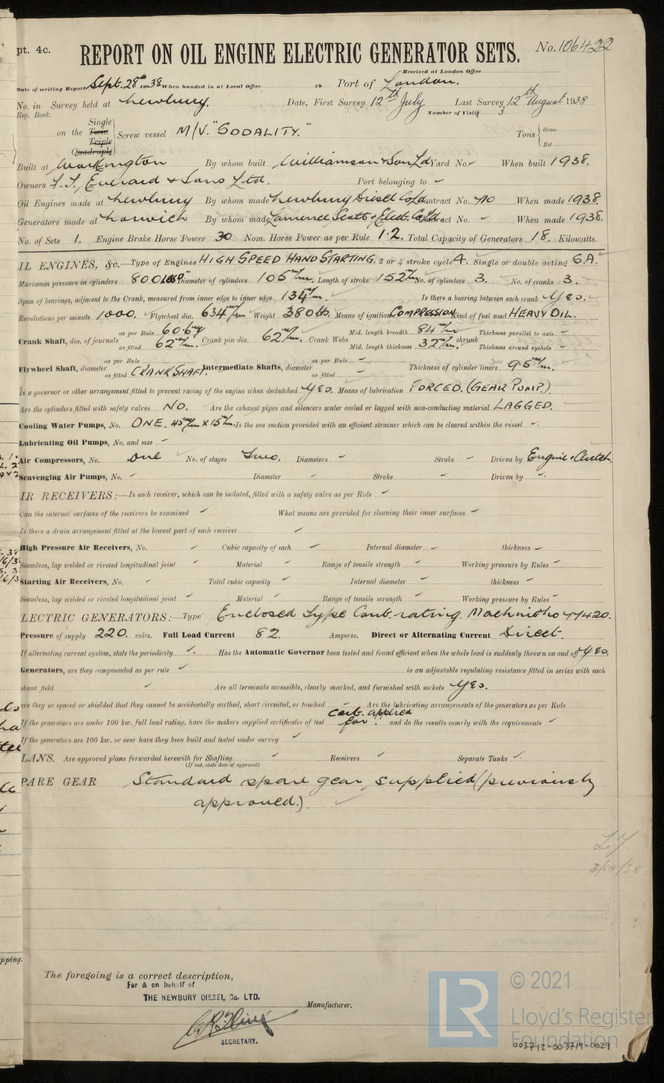 pt. 4c.
REPORT ON OIL ENGINE ELECTRIC GENERATOR SETS. No. 106422
Received at London Office
Date of writing Report Sept. 28th 1938 When handed in at Local Office 19 Port of London.
No. in Survey held at Newbury. Date, First Survey 12th July Last Survey 12th August 1938
Reg. Book. Number of Visits 3
on the Single Twin Triple Quadruple Screw vessel M/V. "SODALITY." Tons Gross Net
Built at Workington By whom built Williamson & Son Ltd Yard No. ✓ When built 1938.
Owners F.T. Everard & Sons Ltd. Port belonging to ✓
Oil Engines made at Newbury By whom made Newbury Diesel Co Ltd Contract No. When made 1938.
Generators made at Norwich By whom made Lawrence Scott & Elect. Co Ltd Contract No. - When made 1938.
No. of Sets 1. Engine Brake Horse Power 30 Nom. Horse Power as per Rule 1.2. Total Capacity of Generators 18 Kilowatts.
IL ENGINES, &c.—Type of Engines HIGH SPEED HAND STARTING. 2 or 4 stroke cycle 4. Single or double acting S.A.
Maximum pressure in cylinders 800 Diameter of cylinders 105 m/m. Length of stroke 152 m/m No. of cylinders 3. No. of cranks 3.
Span of bearings, adjacent to the Crank, measured from inner edge to inner edge 134 m/m. Is there a bearing between each crank Yes.
Revolutions per minute 1000. Flywheel dia. 634 m/m Weight 380 lbs. Means of ignition COMPRESSION Kind of fuel used HEAVY OIL.
Crank Shaft, dia. of journals as per Rule 60.6 as fitted 62 m/m. Crank pin dia. 62 m/m. Crank Webs Mid. length breadth 84 m/m Thickness parallel to axis -
Mid. length thickness 32 m/m. shrunk Thickness around eyehole -
Flywheel Shaft, diameter as per Rule as fitted CRANKSHAFT Intermediate Shafts, diameter as per Rule - as fitted - Thickness of cylinder liners 9.5 m/m.
Is a governor or other arrangement fitted to prevent racing of the engine when declutched Yes. Means of lubrication FORCED. (GEAR PUMP).
Are the cylinders fitted with safety valves NO. Are the exhaust pipes and silencers water cooled or lagged with non-conducting material LAGGED.
Cooling Water Pumps, No. ONE. 45 m/m x 15 m/m. Is the sea suction provided with an efficient strainer which can be cleared within the vessel -
Lubricating Oil Pumps, No. and size -
Air Compressors, No. One No. of stages Two. Diameters - Stroke - Driven by Engine & Clutch
Scavenging Air Pumps, No. - Diameter - Stroke - Driven by -
IR RECEIVERS:—Is each receiver, which can be isolated, fitted with a safety valve as per Rule ✓
Can the internal surfaces of the receivers be examined ✓ What means are provided for cleaning their inner surfaces -
Is there a drain arrangement fitted at the lowest part of each receiver ✓
High Pressure Air Receivers, No. ✓ Cubic capacity of each ✓ Internal diameter ✓ thickness ✓
Seamless, lap welded or riveted longitudinal joint ✓ Material ✓ Range of tensile strength ✓ Working pressure by Rules ✓
Starting Air Receivers, No. ✓ Total cubic capacity ✓ Internal diameter ✓ thickness ✓
Seamless, lap welded or riveted longitudinal joint ✓ Material ✓ Range of tensile strength ✓ Working pressure by Rules ✓
LECTRIC GENERATORS:—Type Enclosed Type Cont. rating. Machine No 77420.
Pressure of supply 220. volts. Full Load Current 82. Amperes. Direct or Alternating Current Direct.
If alternating current system, state the periodicity ✓. Has the Automatic Governor been tested and found efficient when the whole load is suddenly thrown on and off Yes.
Generators, are they compounded as per rule ✓ is an adjustable regulating resistance fitted in series with each
shunt field ✓ Are all terminals accessible, clearly marked, and furnished with sockets Yes.
are they so spaced or shielded that they cannot be accidentally earthed, short circuited, or touched Are the lubricating arrangements of the generators as per Rule
If the generators are under 100 kw. full load rating, have the makers supplied certificates of test Cert. applied for. and do the results comply with the requirements ✓
If the generators are 100 kw. or over have they been built and tested under survey ✓
LANS. Are approved plans forwarded herewith for Shafting ✓ Receivers ✓ Separate Tanks ✓
(If not, state date of approval)
PARE GEAR Standard spare gear supplied (previously
approved.).
The foregoing is a correct description,
For & on behalf of
THE NEWBURY DIESEL Co. LTD.
Manufacturer.
SECRETARY.
LR © 2021
Lloyd's Register
Foundation
003712-003719-0029